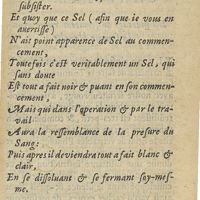 subsister.
Et quoy que ce Sel (afin que ie vous en
auertisse)
N'ait point apparence de Sel au commen-
cement,
Toutefois c'est veritablement un Sel, qui
sans doute
Est tout a fait noir & puant en son commen-
cement,
Mais qui dans l'operation & par le tra-
vail
Aura la ressemblance de la presure du
Sang:
Puis apres il deviendra tout a fait blanc &
clair,
En se dissoluant & se fermant soy-mes-
me.